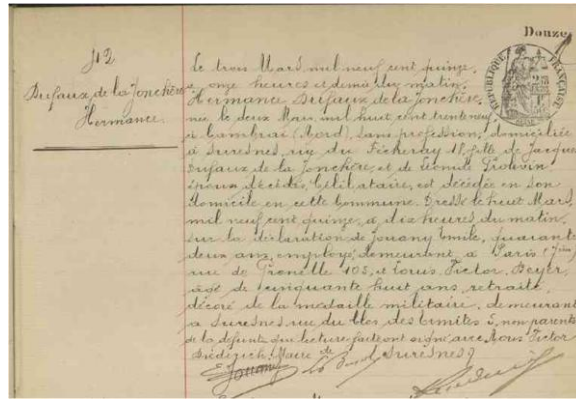 Douze
N° 12
Dufaux de la Jonchère
Hermance
Le trois Mars mil neuf cent quinze,
à onze heures et demie du matin,
Hermance Dufaux de la Jonchère,
née le deux Mars mil huit cent trente neuf
à Cambrai (Nord), sans profession, domiciliée
à Suresnes, rue du 18, fille de Jacques
Dufaux de la Jonchère, et de Léonide
époux décédés, Célibataire, est décédée en son
domicile en cette Commune. Dressé le huit Mars
mil neuf cent quinze, à dix heures du matin,
sur la déclaration de Jouany Emile, quarante
deux ans, employé, demeurant à Paris
rue de Grenelle 105, et Louis Victor, Beyer,
âgé de cinquante huit ans, retraité,
décoré de la médaille militaire, demeurant
à Suresnes rue du Clos des Ermites 5, non parents
de la défunte, qui lecture faite ont signé avec Nous Victor
Diederich, Maire de Suresnes
RÉPUBLIQUE FRANÇAISE